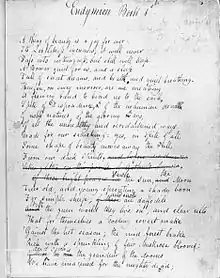 Endymion Book 1st
A thing of beauty is a joy for ever:
Its Loveliness increases; it will never
Pass into nothingness; but still will keep
A Bower quiet for us, and a sleep
Full of sweet dreams, and health, and quiet breathing.
Therefore, on every morrow, are we wreathing
A flowery band to bind us to the earth,
Spite of Despondence, of the inhuman dearth
Of noble natures, of the gloomy
Of all the unhealthy and
Made for our searching: yes, in spite of all
Some shape of beauty moves away the Pall
From our dark Spirits.
the Sun, the Moon
Trees old, and young sprouting a shady boon
For simple sheep; and such are daffodils
With the green world they live in; and clear rills
That for themselves a cooling covert make
Gainst the hot season; the mid forest brake
Rich with a sprinkling of fair musk rose blooms:
And such too is the grandeur of the dooms
We have imagined for the mighty dead